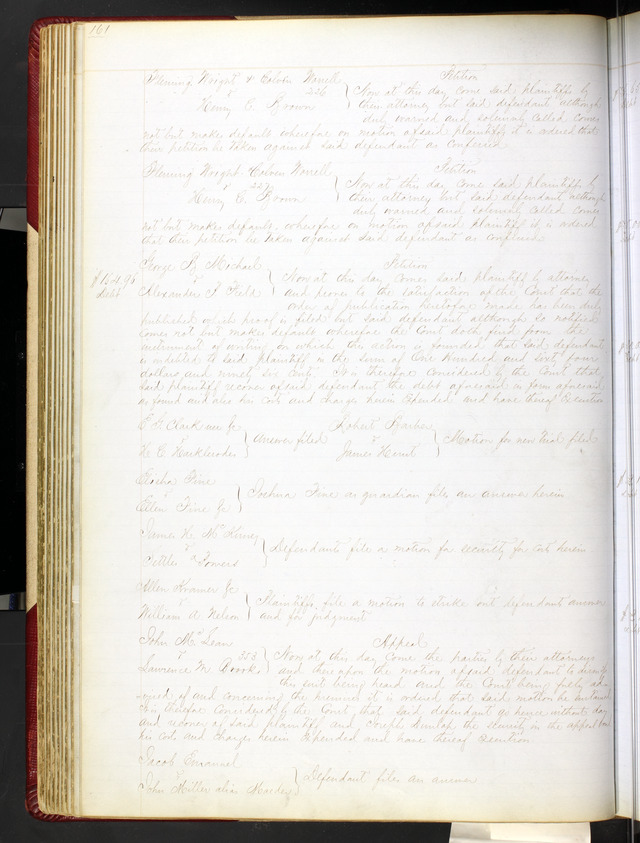 161
Fleming Wright & Colvin Norvell Petition
v 226 Now at this day come said plaintiffs by
Henry C. Brown their attorney but said defendant although
duly warned and solemnly called comes
not but makes default wherefore on motion of said plaintiffs it is ordered that
their petition be taken against said defendant as confessed
Fleming Wright Colvin Norvell Petition
v Now at this day come said plaintiffs by
Henry C. Brown their attorney but said defendant although
duly warned and solemnly called comes
not but makes default, wherefore on motion of said plaintiffs it is ordered
that their petition be taken against said defendant as confessed
George Petition
v Now at this day comes said plaintiff by attorney
Debt Alexander F. Field and proves to the satisfaction of the Court that the
order of publication heretofore made has been duly
published which proof is filed but said defendant although so notified
comes not but makes default wherefore the Court doth find from the
instrument of writing on which the action is founded that said defendant
is indebted to said plaintiff in the sum of One hundred and sixty four
dollars and ninety six cents. It is therefore considered by the Court that
said plaintiff recover of said defendant the debt aforesaid in form aforesaid
as found and also his costs and charges herein expended and have thereof Execution
Clark Robert Barber
v Answer filed v Motion for new trial filed
James
Elisha Fine
v Joshua Fine as guardian files an answer herein
Ellen Fine &c
James K. McKinney
v Defendants file a motion for security for costs herein
Settles & Powers
Allen Kramer &c
v Plaintiffs file a motion to strike out defendants answer
William A. Nelson and for judgment
John McLean Appeal
v 353 Now at this day come the parties by their attorneys
Lawrence M. Brooks and thereupon the motion of said defendant to dismiss
this suit being heard and the Court being fully ad
vised of and concerning the premises it is ordered that said motion be sustained
It is therefore considered by the Court that said defendant go hence without day
and recover of said plaintiff and Joseph Dunlap the Security in the appeal bond
his costs and charges herein expended and have thereof Execution
Jacob Emanuel
v Defendant files an answer
John Miller alias